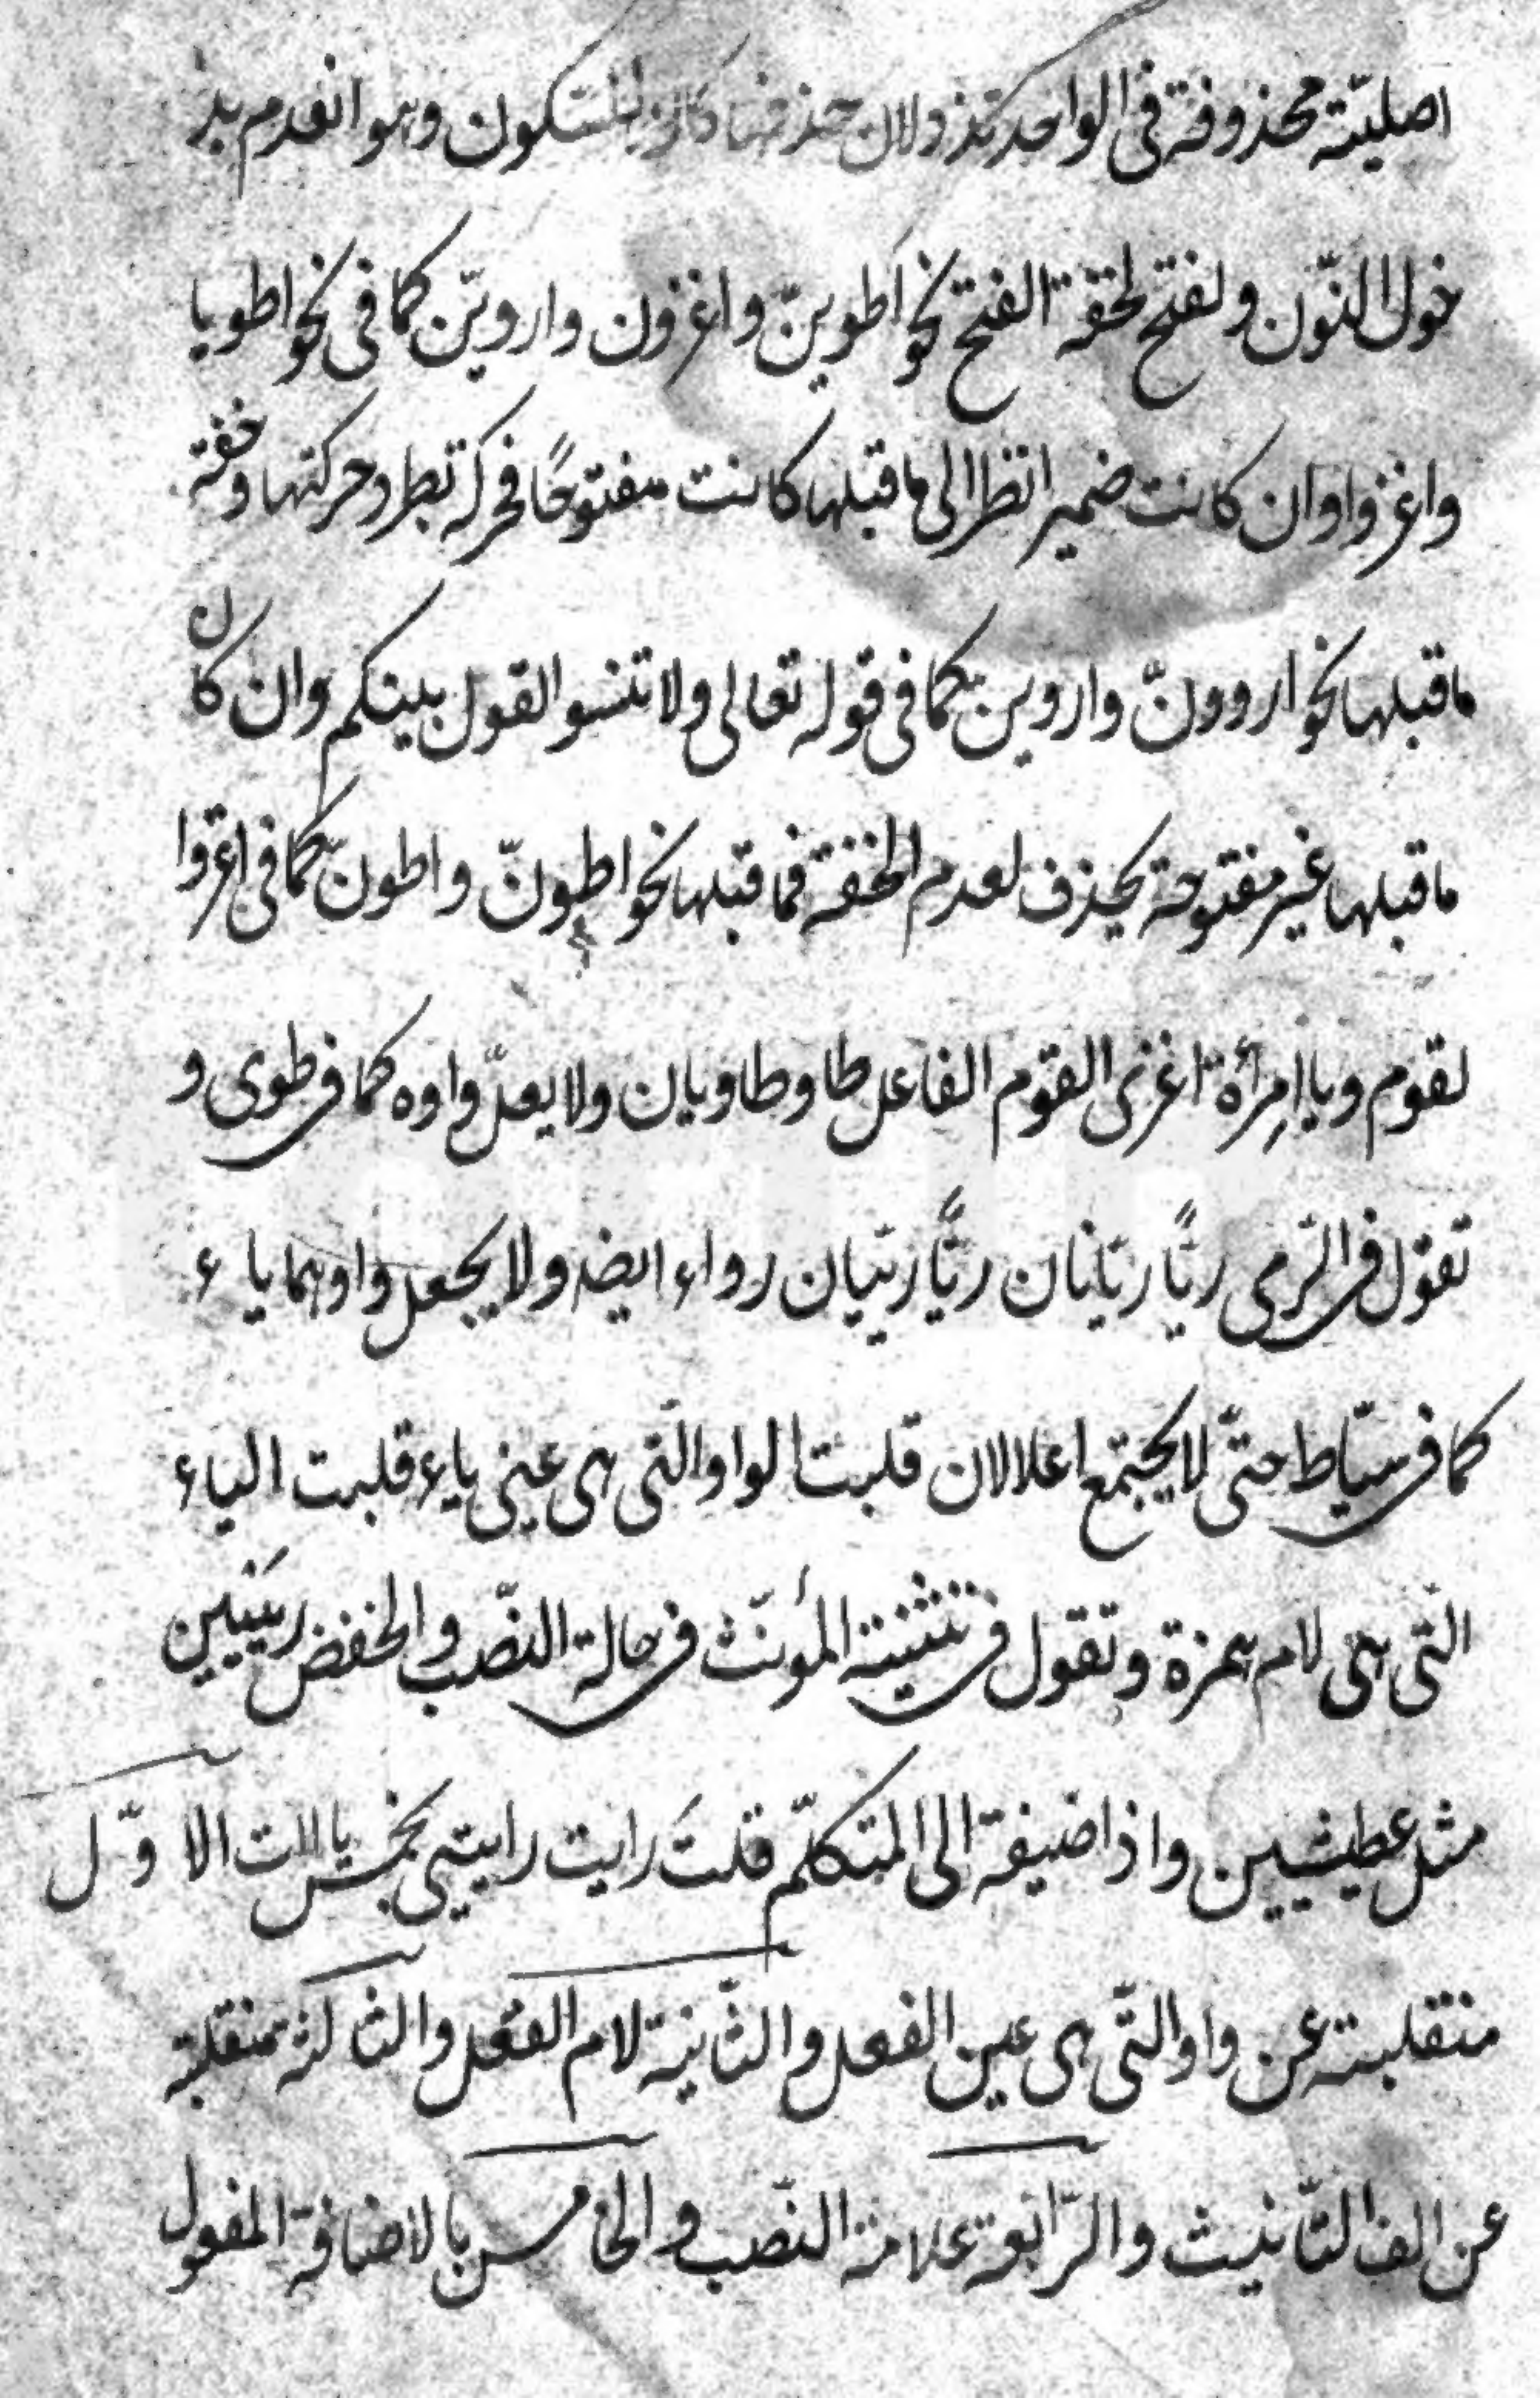 اصليّة محذوفة فى الواحد تذ ولان حذفها كان للسّكون وهو انعدم بد
خول النّون ولفتح لخفة الفتح نحو اطوينّ واغزون واروينّ كما فى نحو اطويا
واغزوا وان كانت ضمير انظر الى ما قبلها كانت مفتوحًا فحركه تطر وحركتها وخفة
ما قبلها نحو اروونّ واروين كما فى قوله تعالى ولا تنسو القول بينكم وان كان
ما قبلها غير مفتوحة يحذف لعدم الخفة فما قبلها نحو اطونّ واطونّ كما فى اغزوا
لقوم ويا امرأة اغزى القوم الفاعل طا وطاويان ولا يعلّ واوه كما فى طوى و
تقول فى الرّمى ريًّا ريّانان ريًّا ريّيان رواء ايضه ولا يجعل واوهما ياء
كما فى سيّاط حتّى لا يجتمع اعلالان قلبت الواو التّى هى عينى ياء قلبت الياء
التّى هى لام همزة وتقول فى تثنية المؤنّث فى حالة النّصب والخفض رييين
مثل عطشيين واذا ضيفة الى المتكلّم قلت رايت رايتيى بخمس ياات الاوّل
منقلبة عن واو التّى هى عين الفعل والثّانية لام الفعل والثالثة منقلبة
عن الف التّانيث والرّابعة علامة النّصب والخامس يا الاضافة المفعول